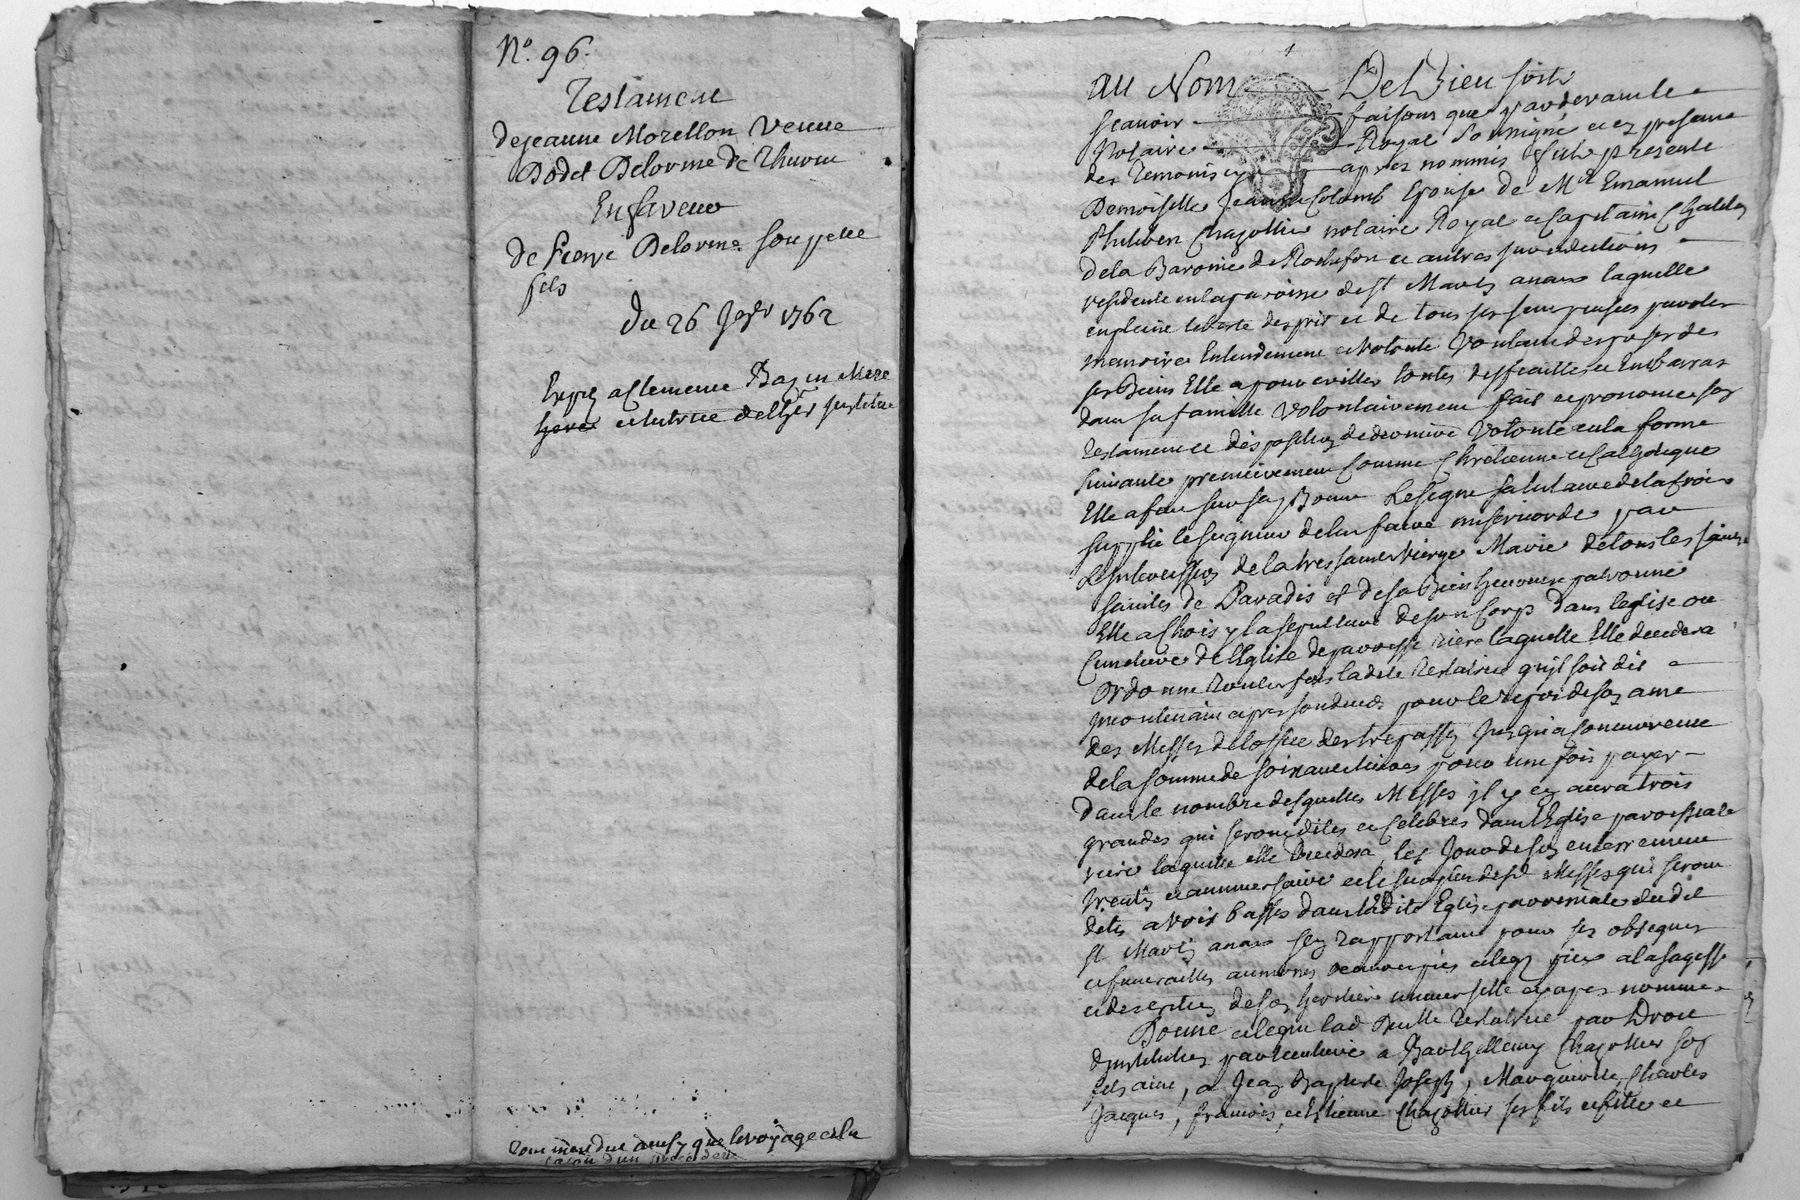 N.° 96.
Testament
de jeanne Morellon Veuve
Dodet Delorme de Thurin
En faveur
de Pierre Delorme son petit
fils
du 26 Jer 1762
Exp a Clemence Bazin Mere
et tutrice
tout inendue ainsy que le voyage et la
1
au Nom De Dieu soit
scavoir faisons que pardevant le
Notaire Royal soussigné et en presence
des temoins cy apres nommés fut presente
Demoiselle Jeanne Colomb Epouse de Mre Emanuel
Philibert Chazottier notaire Royal et Capitaine Chatelain
de la Baronie de Rochefort et autres jurisdictions
residente en la paroisse de St Martin anaux laquelle
en pleine liberte desprit et de tous ses sens pensees paroles
memoire Entendement et Volonte Voulant disposer de
ses Biens Elle a pour eviller toutes difficultes et Embarras
dans sa famille Volontairement fait et prononce son
testament et disposition de derniere Volonte en la forme
suivante premierement Comme Chretienne et Catholique
Elle a fait sur soy Bonne Le signe salutaire de la Croix
supplie le seigneur de luy faire misericorde par
L'intercession de la tres sainte Vierge Marie de tous les saints
saintes de Paradis et de sa Bien heureuse patronne
Elle a Choisy la sepulture de son Corps dans leglise ou
Cimetiere de l'Eglise de paroisse riere laquelle Elle decedera
Ordonne Toutes fois ladite Testatrice qu'il soit dit
Incontinant apres son deces pour le repos de son ame
des Messes de loffice des trepasses Jusqu'a Concurrence
de la somme de soixante livres pour une fois payer
Dans le nombre desquelles Messes il y en aura trois
grandes qui seront dites et Celebres dans l'Eglise paroissiale
riere laquelle elle Decedera les Jour de son enterrement
et anniversaire et le surplus desd Messes qui seront
dites a Voix basses dans ladite Eglise parroissiale dudit
St Martin anaux s'en rapportant pour ses obseques
et funerailles aumones oeuvres pies et legs pieux a la sagesse
et discretion de son heritiere universelle cy apres nommee
Donne et legue lad Dlle Testatrice par Droit
d'institution particuliere a Barthellemy Chazottier son
fils aine, a Jean Baptiste Joseph, Marguerite, Charles
Jacques, francois, et Etienne Chazottier ses fils et fille et